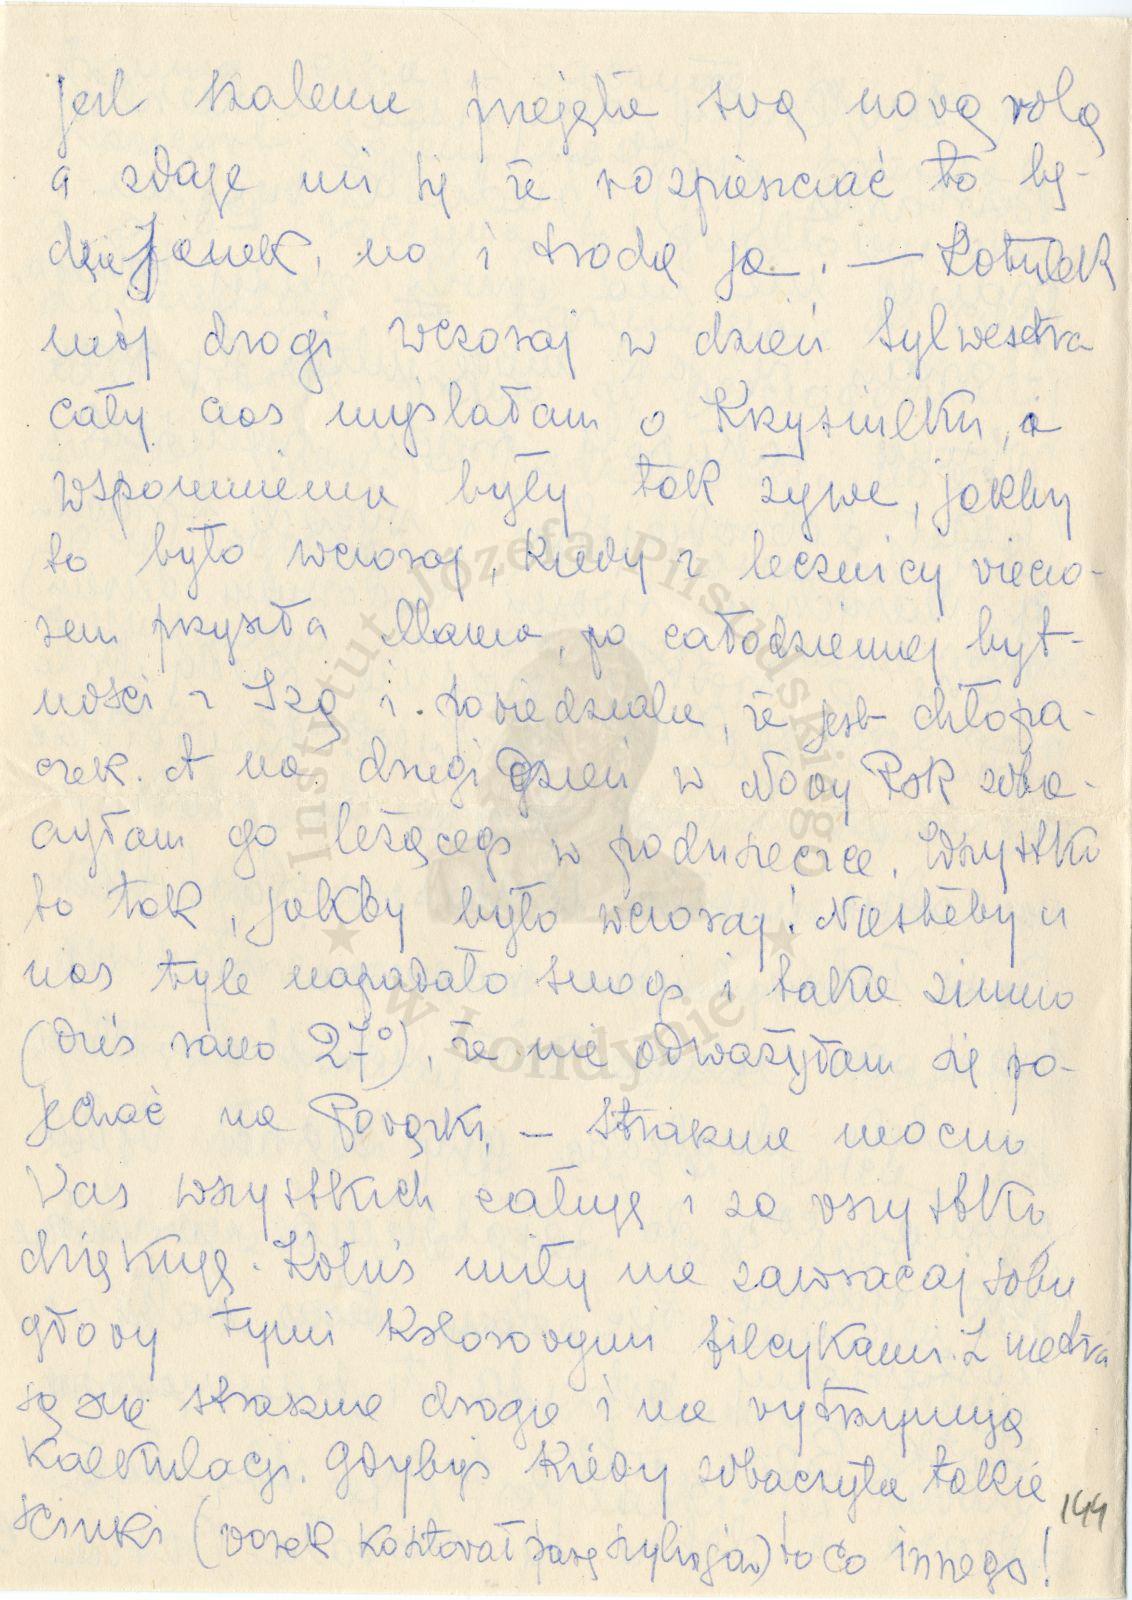 jest szalenie przejęta swą nową rolą
a zdaje mi się że rozpieszczać to bę-
dzie Janek, no i trochę ja. — Kotulek
mój drogi wczoraj w dzień Sylwestra
cały czas myślałam o Krzysiulku, a
wspomnienia były tak żywe, jakby
to było wczoraj, kiedy z lecznicy wieczo-
rem przyszła Mama, po całodziennej byt-
ności z Izą i powiedziała, że jest chłopa-
czek. A na drugi dzień w Nowy Rok zoba-
czyłam go leżącego w poduszeczce. Wszystko
to tak, jakby było wczoraj! Niestety u
nas tyle napadało śniegu i takie zimno
(dziś rano 27°), że nie odważyłam się po-
jechać na Powązki. — Strasznie mocno
Was wszystkich całuję i za wszystko
dziękuję. Kotuś miły nie zawracaj sobie
głowy tymi kolorowymi filcykami. Z metra
są one strasznie drogie i nie wytrzymują
kalkulacji. Gdybyś kiedy zobaczyła takie
ścinki (worek kosztował parę szylingów) to co innego!
144
Instytut Józefa Piłsudskiego
★ w Londynie ★